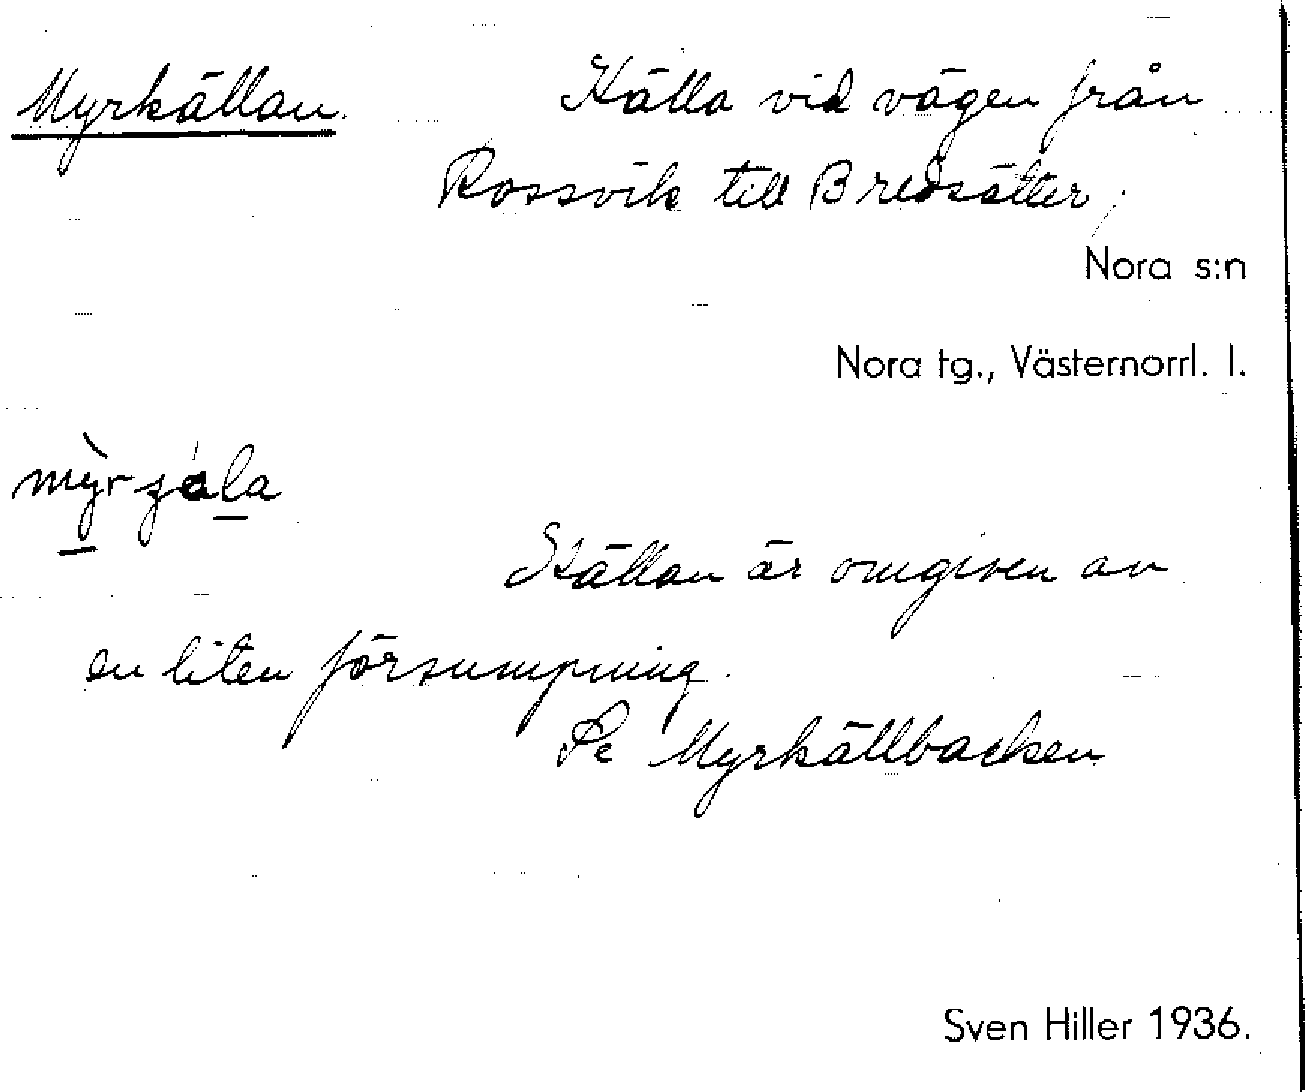 Myrkällan. Källa vid vägen från
Rossvik till Bredsätter,
Nora s:n
Nora tg., Västernorrl. l.
Källan är omgiven av
en liten försumpning.
Se Myrkällbacken
Sven Hiller 1936.